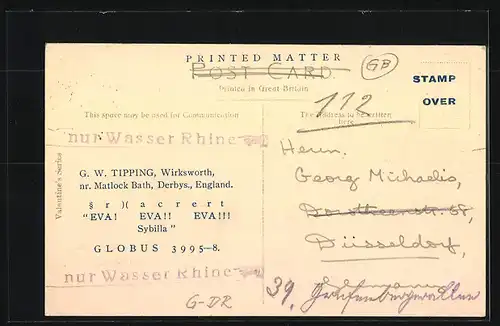 PRINTED MATTER
POST CARD
Printed in Great Britain
GB
STAMP
OVER
112
This space may be used for Communication
The Address to be written
here.
nur Wasser Rhine
Valentine's Series
G. W. TIPPING, Wirksworth,
nr. Matlock Bath, Derbys., England.
§ r )( a c r e r t
"EVA! EVA!! EVA!!!
Sybilla"
GLOBUS 3995-8.
nur Wasser Rhine
G-DR
Herrn.
Georg Michaelis,
58,
Düsseldorf,
39, Grafenbergerallee